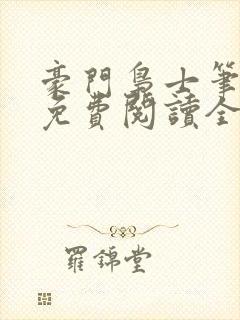 豪門梟士筆
免費閱讀全
羅錦堂